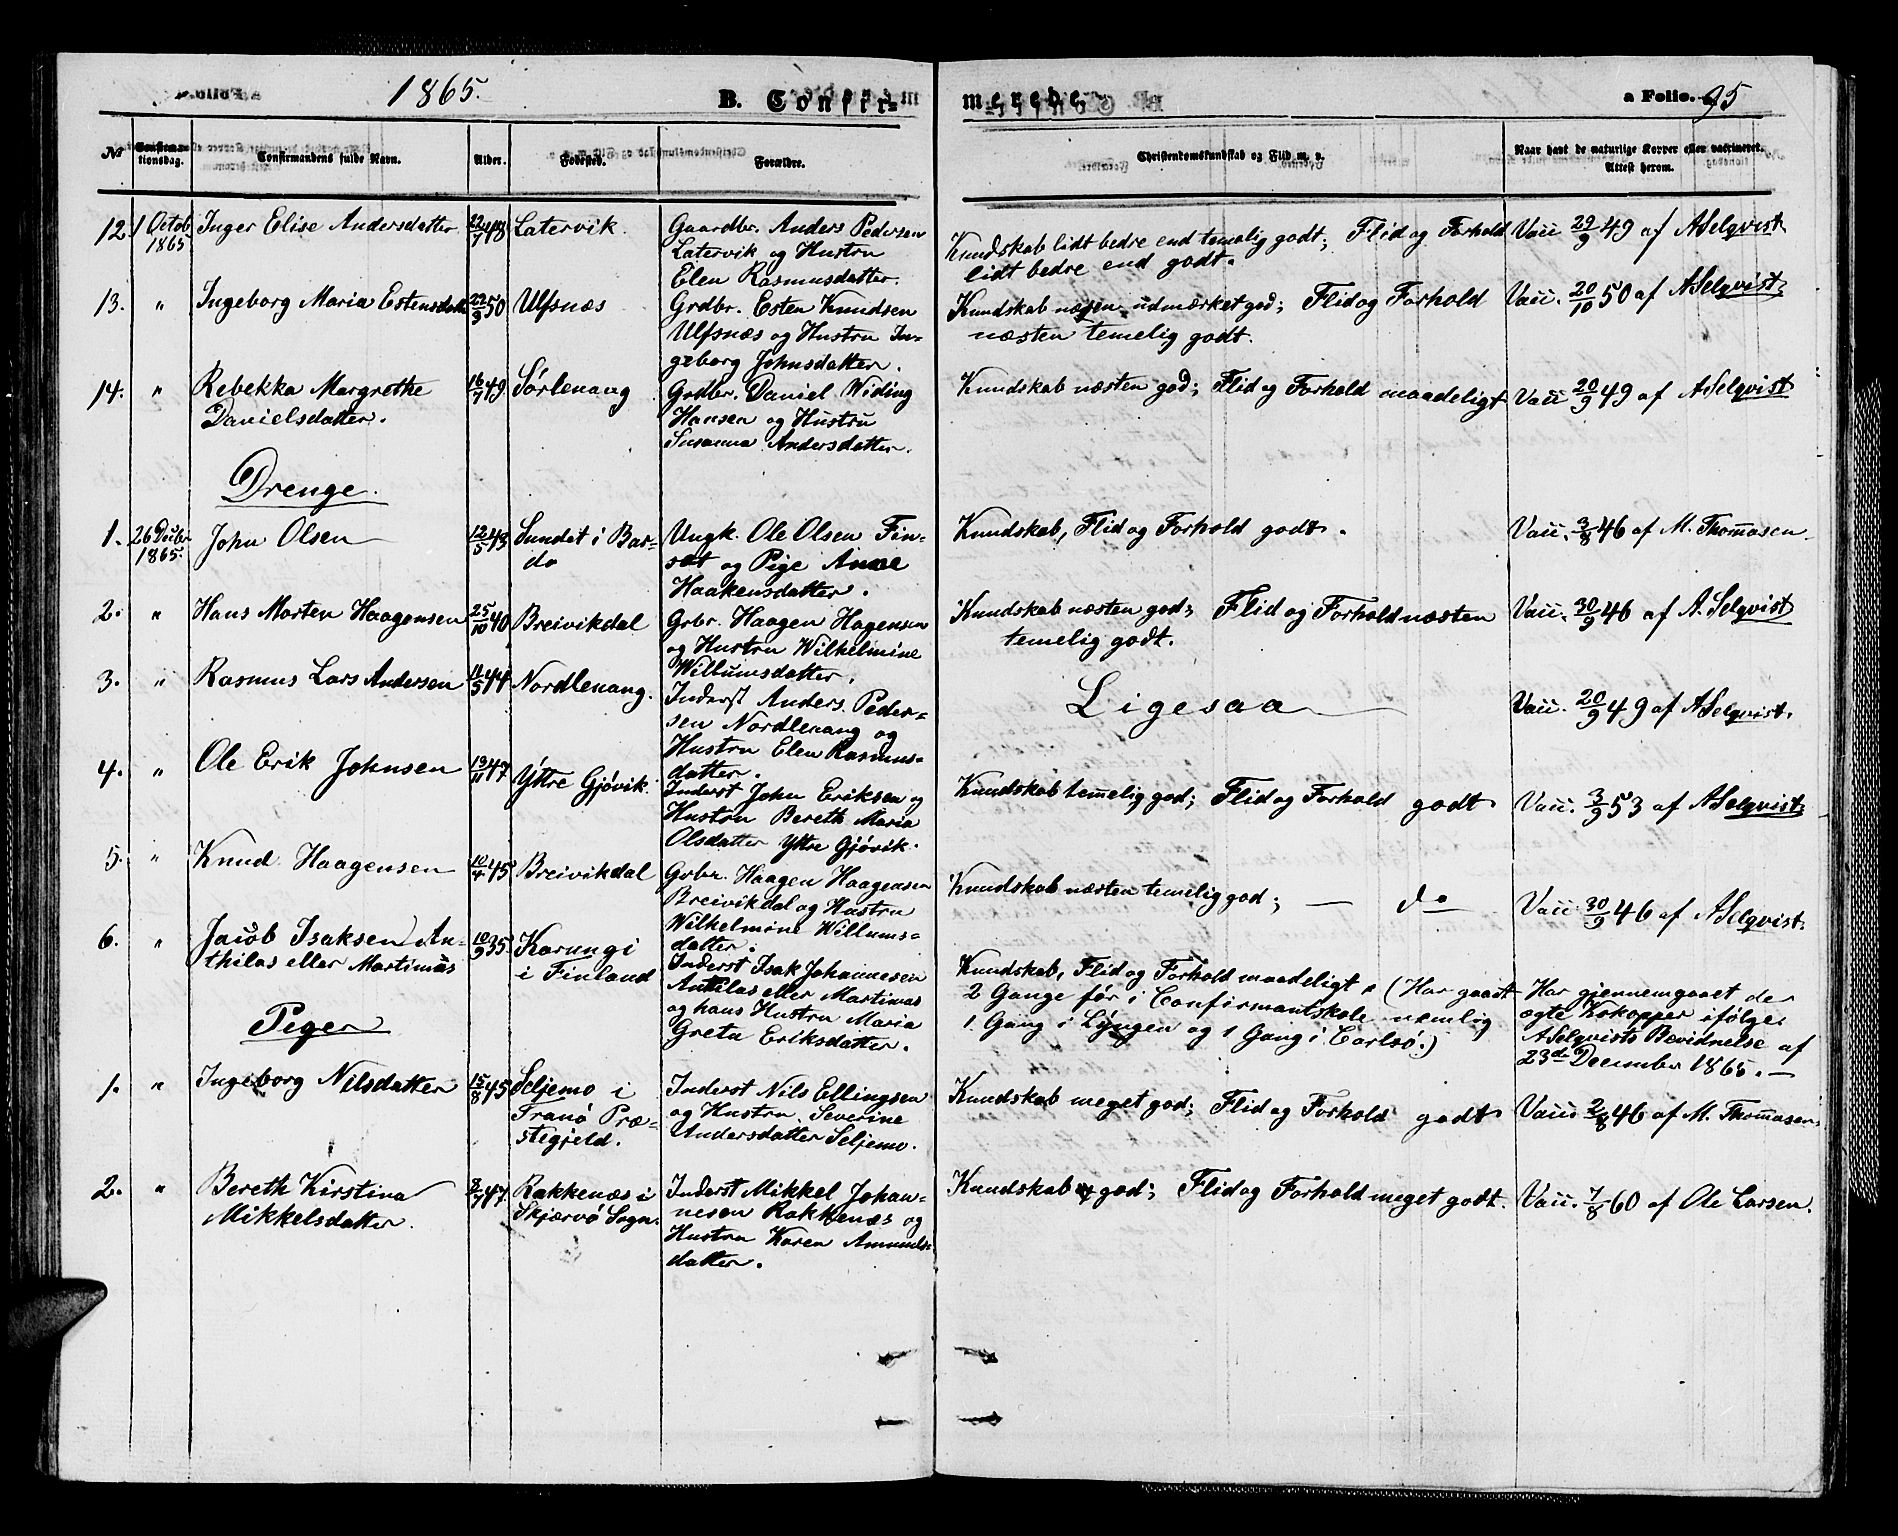 1865.
B. Confirmerede.
a Folio. 95
No Confirmationsdag. Confirmandens fulde Navn. Alder. Fødested. Forældre. Christendomskundskab og Flid m. v. Naar havt de naturlige Kopper eller vaccineret. Attest herom.
12. 1 Octob 1865. Inger Elise Andersdatter 22/7 48 Latervik. Gaardbr. Anders Pedersen
Latervik og Hustru
Elen Rasmusdatter.
Kundskab lidt bedre end temelig godt; Flid og Forhold
lidt bedre end godt.
Vacc 29/9 49 af ASelqvist.
13. " Ingeborg Maria Estensdatt 22/9 50 Ulfsnæs Grdbr. Esten Knudsen
Ulfsnæs og Hustru In-
geborg Johnsdatter.
Kundskab næsten udmærket god; Flid og Forhold
næsten temelig godt.
Vacc. 20/10 50 af ASelqvist.
14. " Rebekka Margrethe
Danielsdatter.
16/7 49 Sørlenang Grdbr. Daniel Widing
Hansen og Hustru
Susanna Andersdatter.
Kundskab næsten god; Flid og Forhold maadeligt Vacc 20/9 49 af ASelqvist
Drenge.
1. 26 Decbr 1865. John Olsen 12/5 43 Sundet i Bar-
do
Ungk. Ole Olsen Fin-
sæt og Pige Anne
Haakensdatter.
Kundskab, Flid og Forhold godt. Vacc. 3/8 46 af M. Thomasen.
2. " Hans Morten Haagensen 25/10 40 Breivikdal Gvbr. Haagen Hagensen
og Hustru Wilhelmine
Willumsdatter.
Kundskab næsten god; Flid og Forhold næsten
temelig godt.
Vacc. 30/9 46 af A. Selqvist
3. " Rasmus Lars Andersen 11/5 44 Nordlenang. Inderst Anders Peder-
sen Nordlenang og
Hustru Elen Rasmus-
datter.
Ligesaa Vacc. 20/9 49 af ASelqvist.
4. " Ole Erik Johnsen 13/11 47 Yttre Gjøvik. Inderst John Eriksen og
Hustru Bereth Maria
Olsdatter Yttre Gjøvik.
Kundskab temelig god; Flid og Forhold godt Vacc. 3/9 53 af ASelqvist.
5. " Knud Haagensen 10/4 45 Breivikdal Gvbr. Haagen Haagensen
Breivikdal og Hustru
Wilhelmine Willums-
datter.
Kundskab næsten temelig god; — do Vacc. 30/9 46 af ASelqvist.
6. " Jacob Isaksen An-
thilas eller Martimus
10/9 35. Karungi
i Finland
Inderst Isak Johannesen
Anthilas eller Martimas
og hans Hustru Maria
Greta Eriksdatter.
Kundskab, Flid og Forhold maadeligt. (Har gaaet
2 Gange før i Confirmantskole nemlig
1. Gang i Lyngen og 1 Gang i Carlsø.)
Har gjennemgaaet de
ægte Kokopper ifølge
ASelqvists Bevidnelse af
23de December 1865. —
Piger
1. " Ingeborg Nilsdatter 15/8 45 Seljemo i
Tranø Præ-
stegjeld.
Inderst Nils Ellingsen
og Hustru Severine
Andersdatter Seljemo.
Kundskab meget god; Flid og Forhold godt Vacc 2/8 46 af M. Thomasen.
2. " Bereth Kirstina
Mikkelsdatter.
8/7 47. Rakkenæs i
Skjærvø Sogn.
Inderst Mikkel Johan-
nesen Rakkenæs og
Hustru Karen Amunds-
datter.
Kundskab god; Flid og Forhold meget godt. Vacc. 7/8 60 af Ole Larsen.